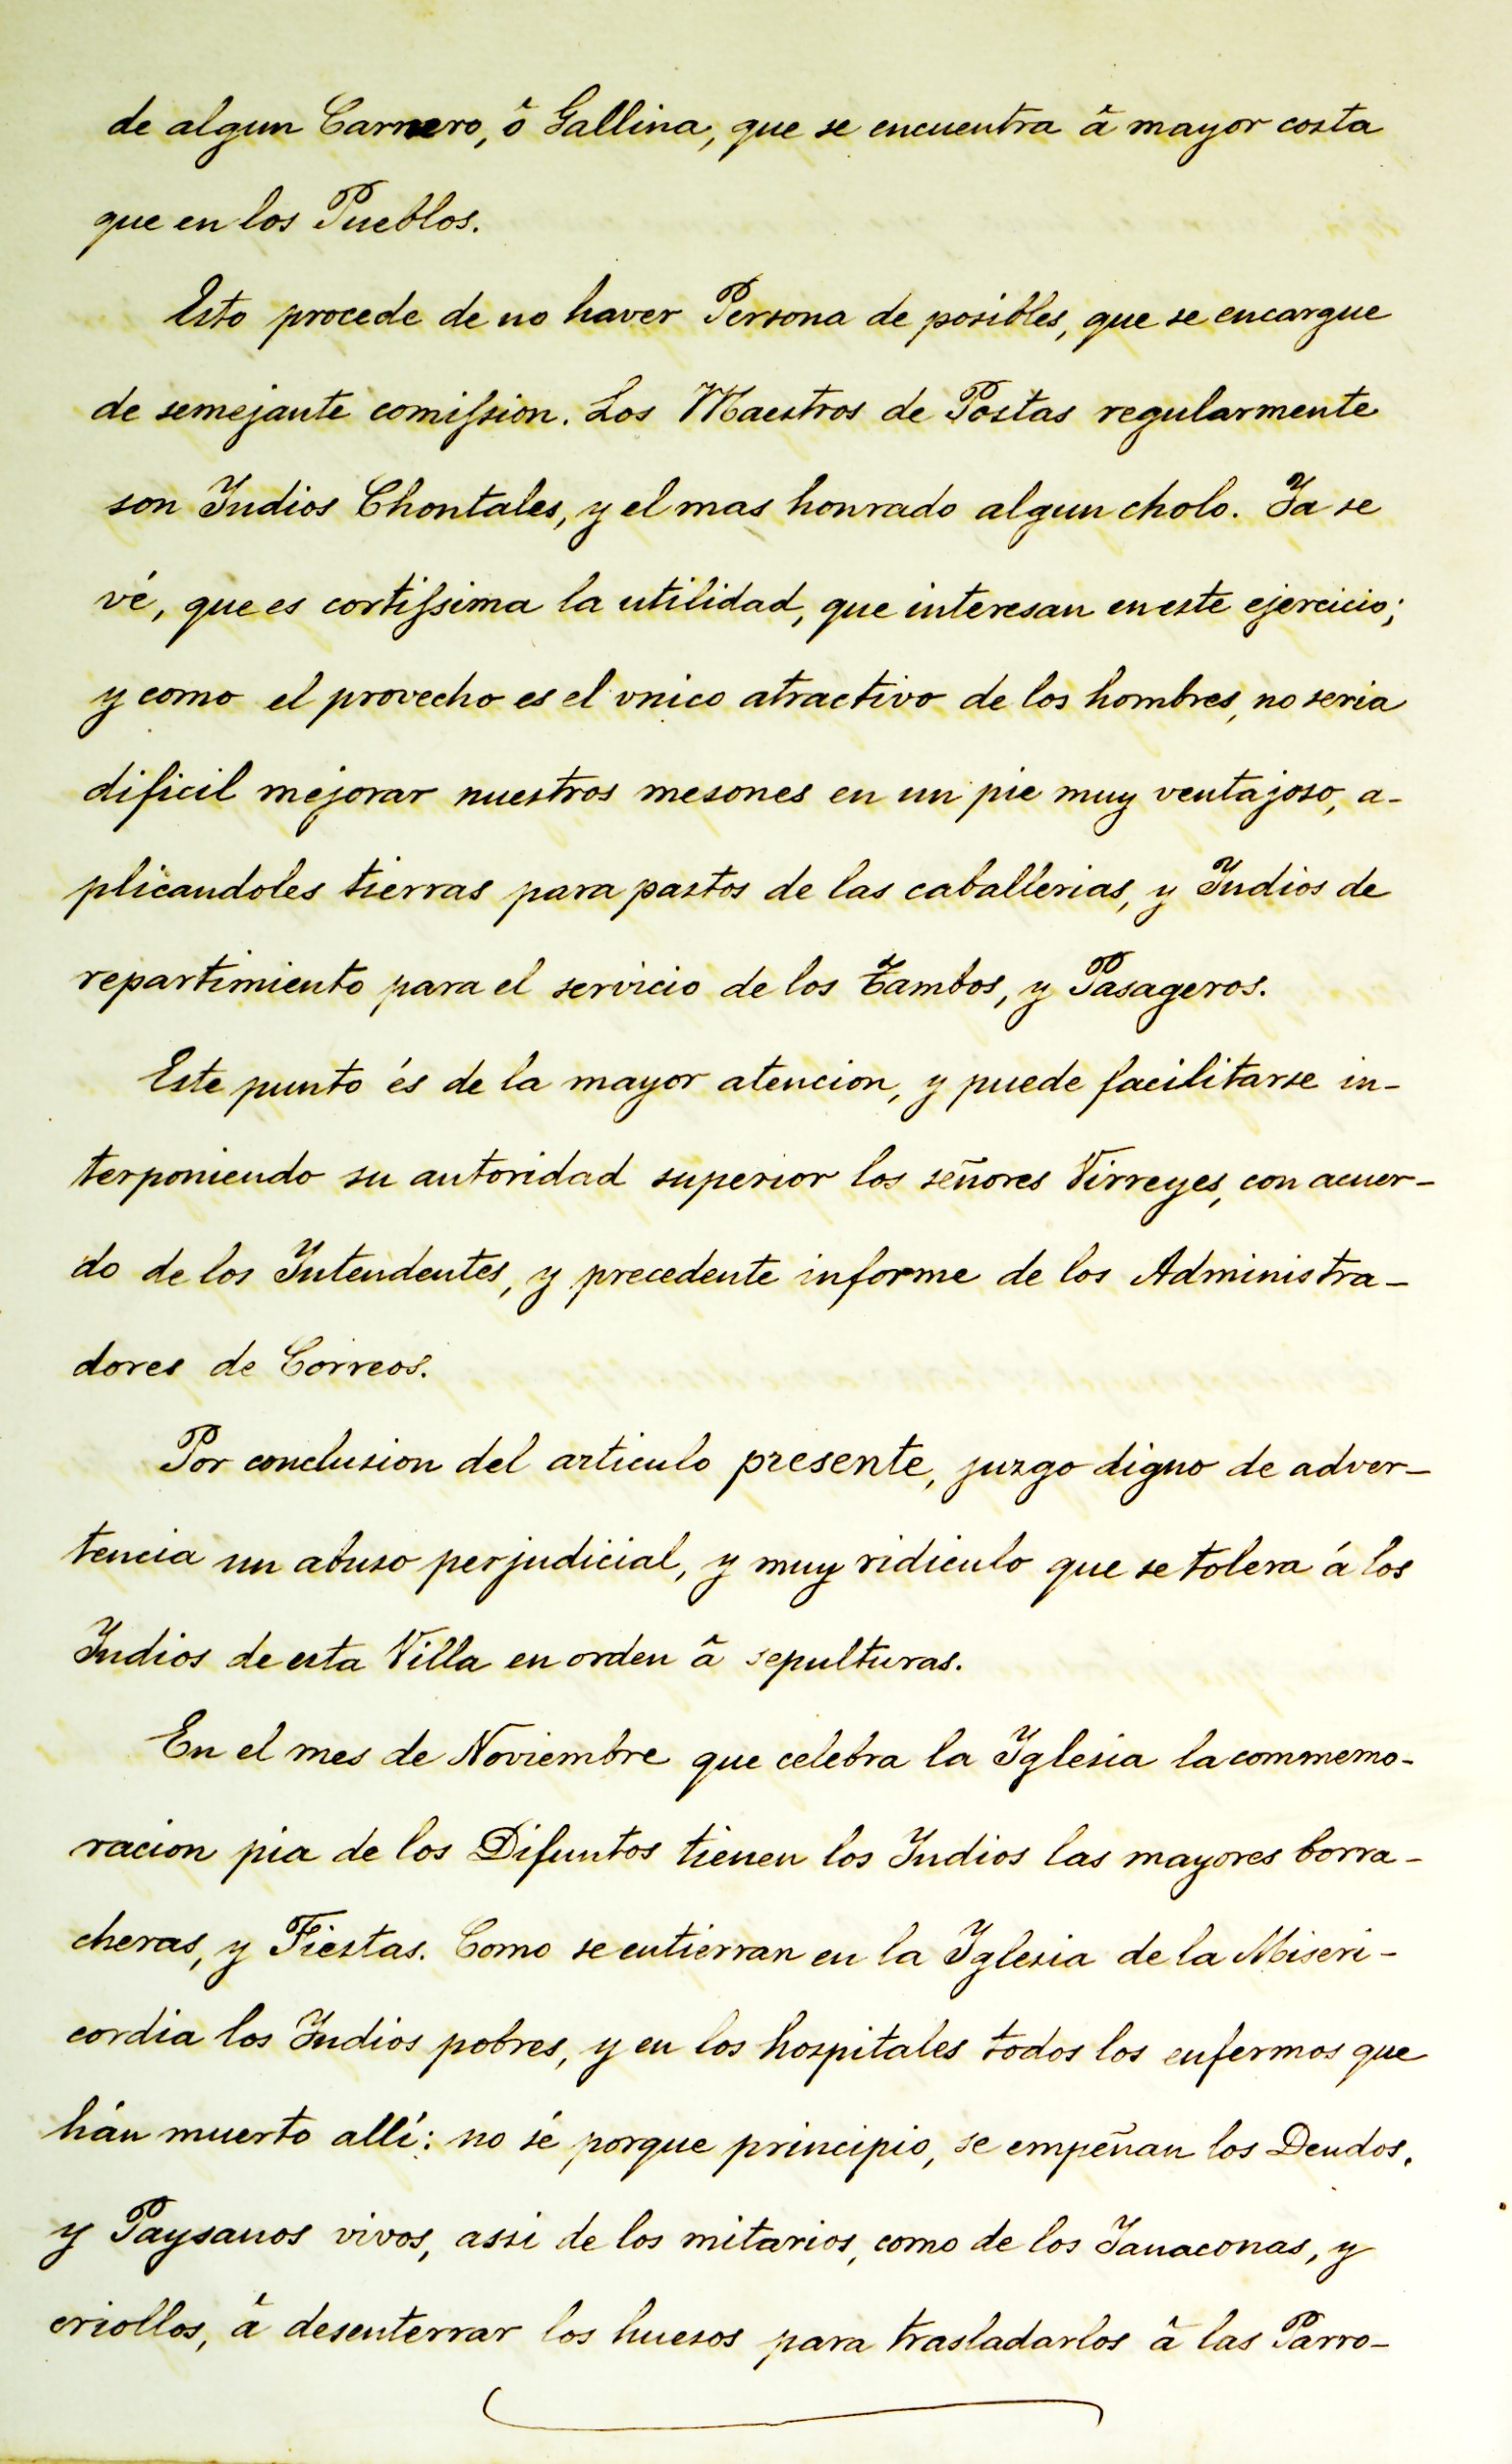 de algun Carnero, ô Gallina, que se encuentra â mayor costa
que en los Pueblos.
Esto procede de no haver Persona de posibles, que se encargue
de semejante comiſsion. Los Maestros de Postas regularmente
son Yndios Chontales, y el mas honrado algun cholo. Ya se
vé, que es cortiſsima la utilidad, que interesan en este ejercicio;
y como el provecho es el vnico atractivo de los hombres, no seria
dificil mejorar nuestros mesones en un pie muy ventajoso, a-
plicandoles tierras para pastos de las caballerias, y Yndios de
repartimiento para el servicio de los Tambos, y Pasageros.
Este punto és de la mayor atencion, y puede facilitarse in-
terponiendo su autoridad superior los señores Virreyes, con acuer-
do de los Yntendentes, y precedente informe de los Administra-
dores de Correos.
Por conclusion del articulo presente, juzgo digno de adver-
tencia un abuso perjudicial, y muy ridiculo que se tolera á los
Yndios de esta Villa en orden â sepulturas.
En el mes de Noviembre que celebra la Yglesia la commemo-
racion pia de los Difuntos tienen los Yndios las mayores borra-
cheras, y Fiestas. Como se entierran en la Yglesia de la Miseri-
cordia los Yndios pobres, y en los hospitales todos los enfermos que
hán muerto allí: no sé porque principio, se empeñan los Deudos,
y Paysanos vivos, assi de los mitarios, como de los Yanaconas, y
criollos, â desenterrar los huesos para trasladarlos â las Parro-